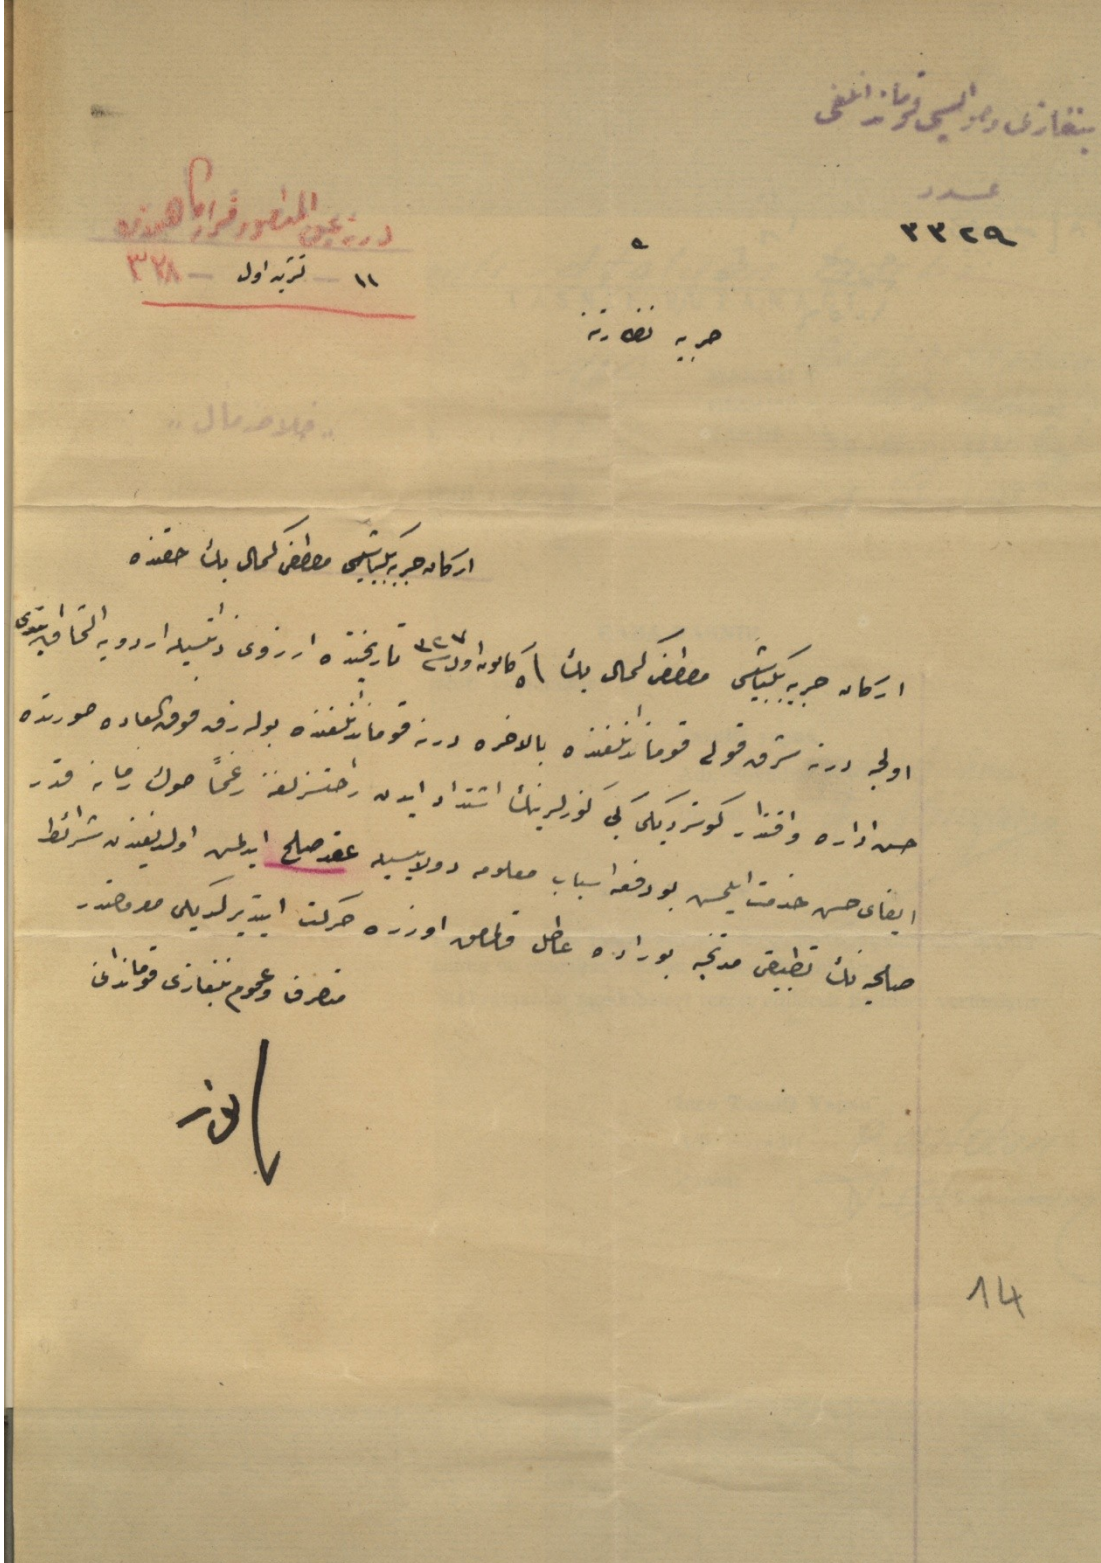 بنغازی و حوالیسی قوماندانلغی
عدد
٣٣٢٩
درنه عین المنصور قرارکاهندن
١١ – تشرین اول – ٣٢٨
حربیه نظارتنه
ارکان حربیه بیکباشیسی مصطفی کمال بك حقنده
ارکان حربیه بیکباشیسی مصطفی کمال بك کانون اول ٣٢٧ تاریخنده ارزوی ذاتیسیله اردویه التحاق ایتدی
اولجه درنه شرق قولی قوماندانلغنده بالاخره درنه قوماندانلغنده بولنه رق فوق العاده صورتده
حسن اداره و اقتدار کوستردیکی کبی کوزلرینك اشتداد ایدن راحتسزلغنه رغماً صوك زمانه قدر
ایفای حسن خدمت ایلمش بو دفعه اسباب معلومه دولاییسیله عقد صلح ایدلمش اولدیغندن شرائط
صلحیه نك تطبیقی مدتنجه بوراده عاطل قالمامق اوزره حرکت ایتدیرلدیکی معروضدر
متصرف و عموم بنغازی قوماندانی
انور
14